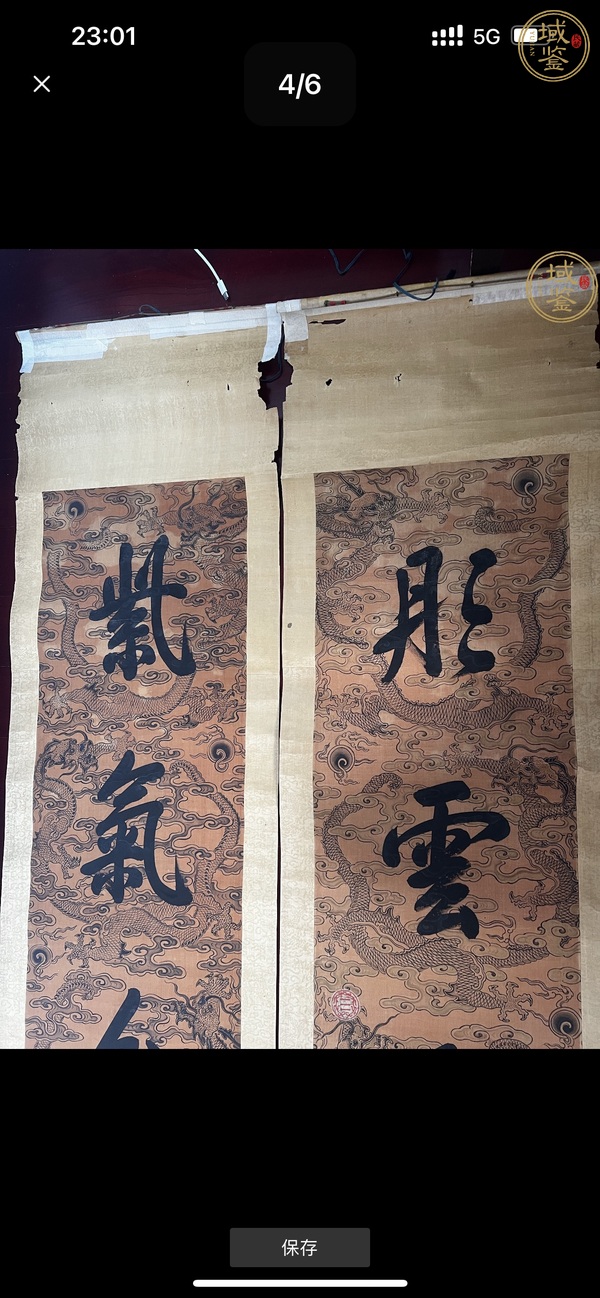 23:01
5G
4/6
域鉴
域鉴
彤雲
紫氣
保存